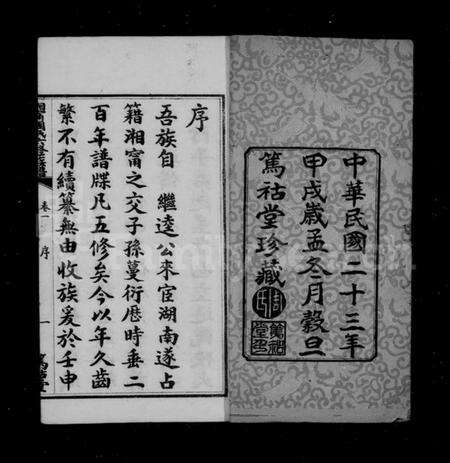 中華民國二十三年
甲戌歲孟冬月穀旦
篤祜堂珍藏
序
吾族自　繼逵公來宦湖南遂占
籍湘甯之交子孫蔓衍歷時垂二
百年譜牒凡五修矣今以年久齒
繁不有續纂無由收族爰於壬申
卷一　序
一